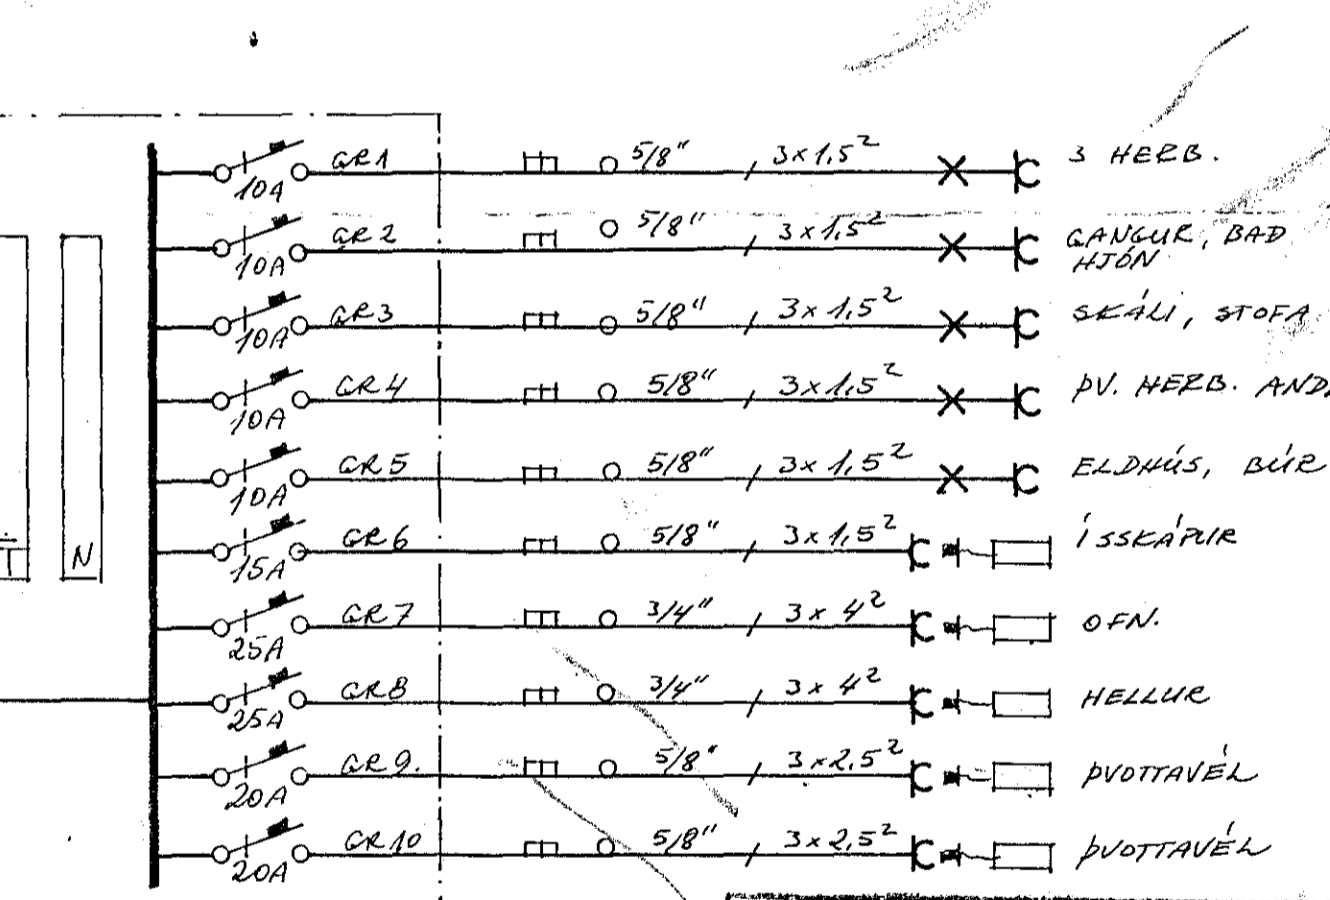 GR1 5/8" 3x1,5² 3 HERB.
10A
GR2 5/8" 3x1,5² GANGUR, BAD
10A HJÓN
GR3 5/8" 3x1,5² SKÁLI, STOFA
10A
GR4 5/8" 3x1,5² ÞV. HERB. AND.
10A
GR5 5/8" 3x1,5² ELDHÚS, BÚR
10A
GR6 5/8" 3x1,5² ÍSSKÁPUR
15A
T N
GR7 3/4" 3x4² OFN.
25A
GR8 3/4" 3x4² HELLUR
25A
GR9. 5/8" 3x2,5² ÞVOTTAVÉL
20A
GR10 5/8" 3x2,5² ÞVOTTAVÉL
20A